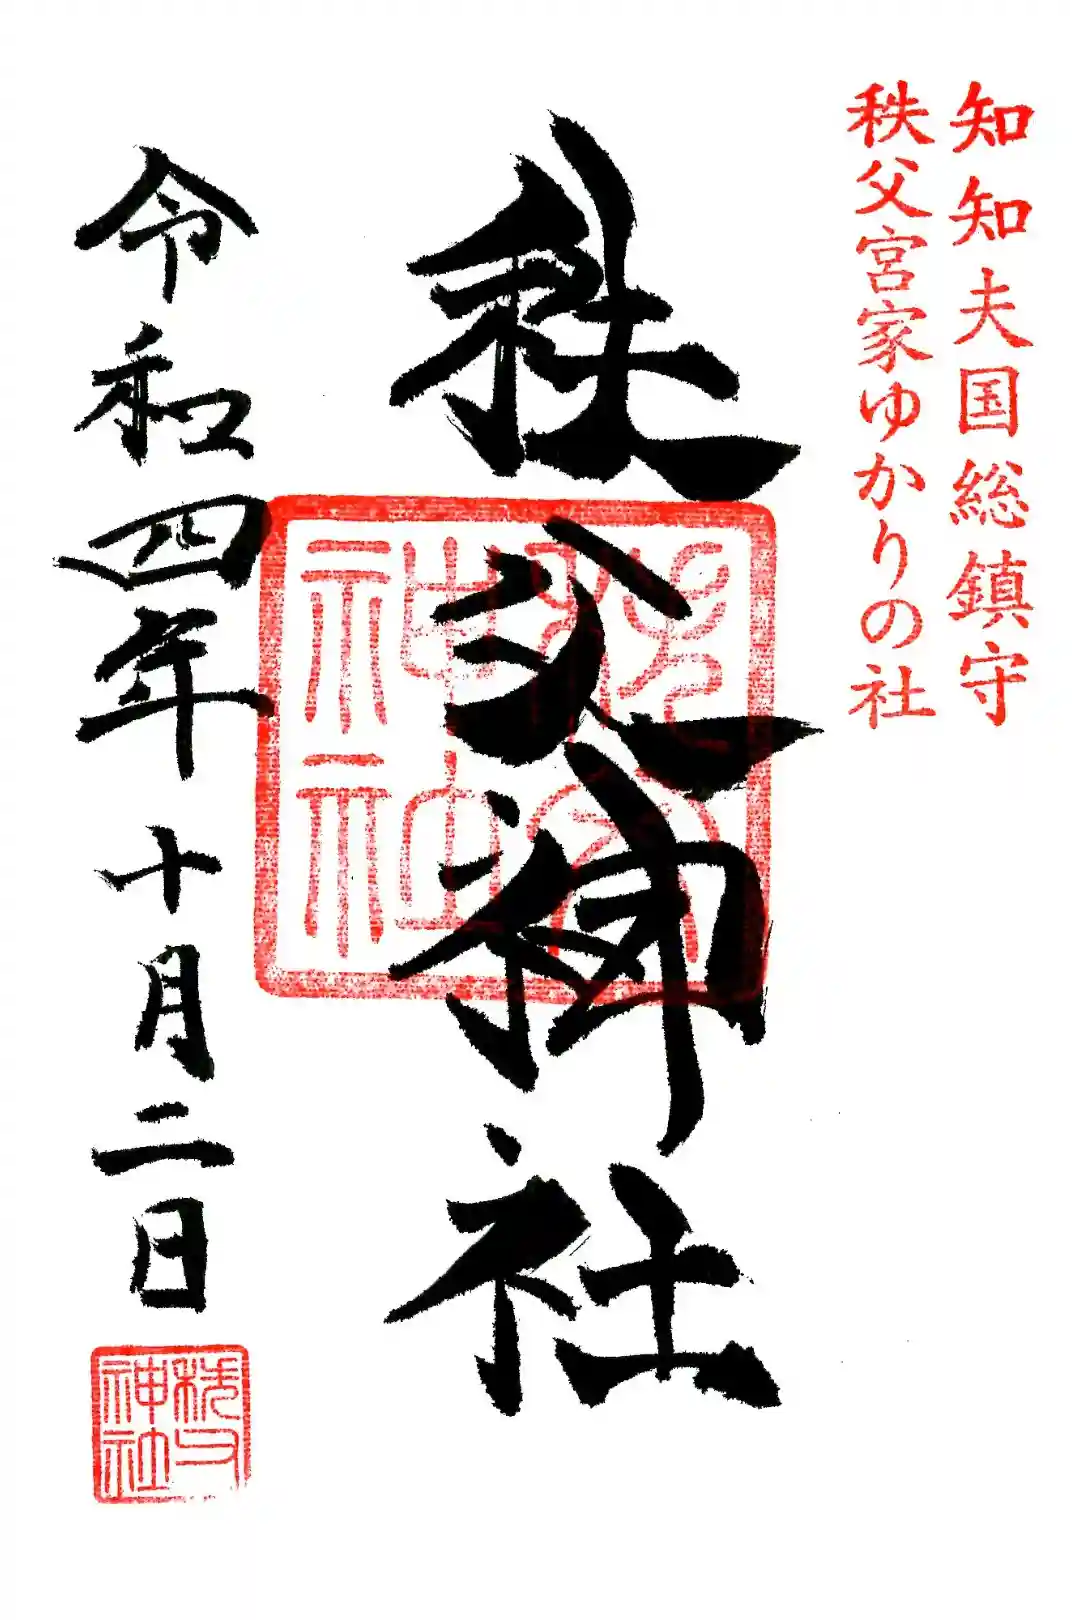 知知夫国総鎮守
秩父宮家ゆかりの社
秩父神社
秩父
神社
令和四年十月二日
秩父
神社